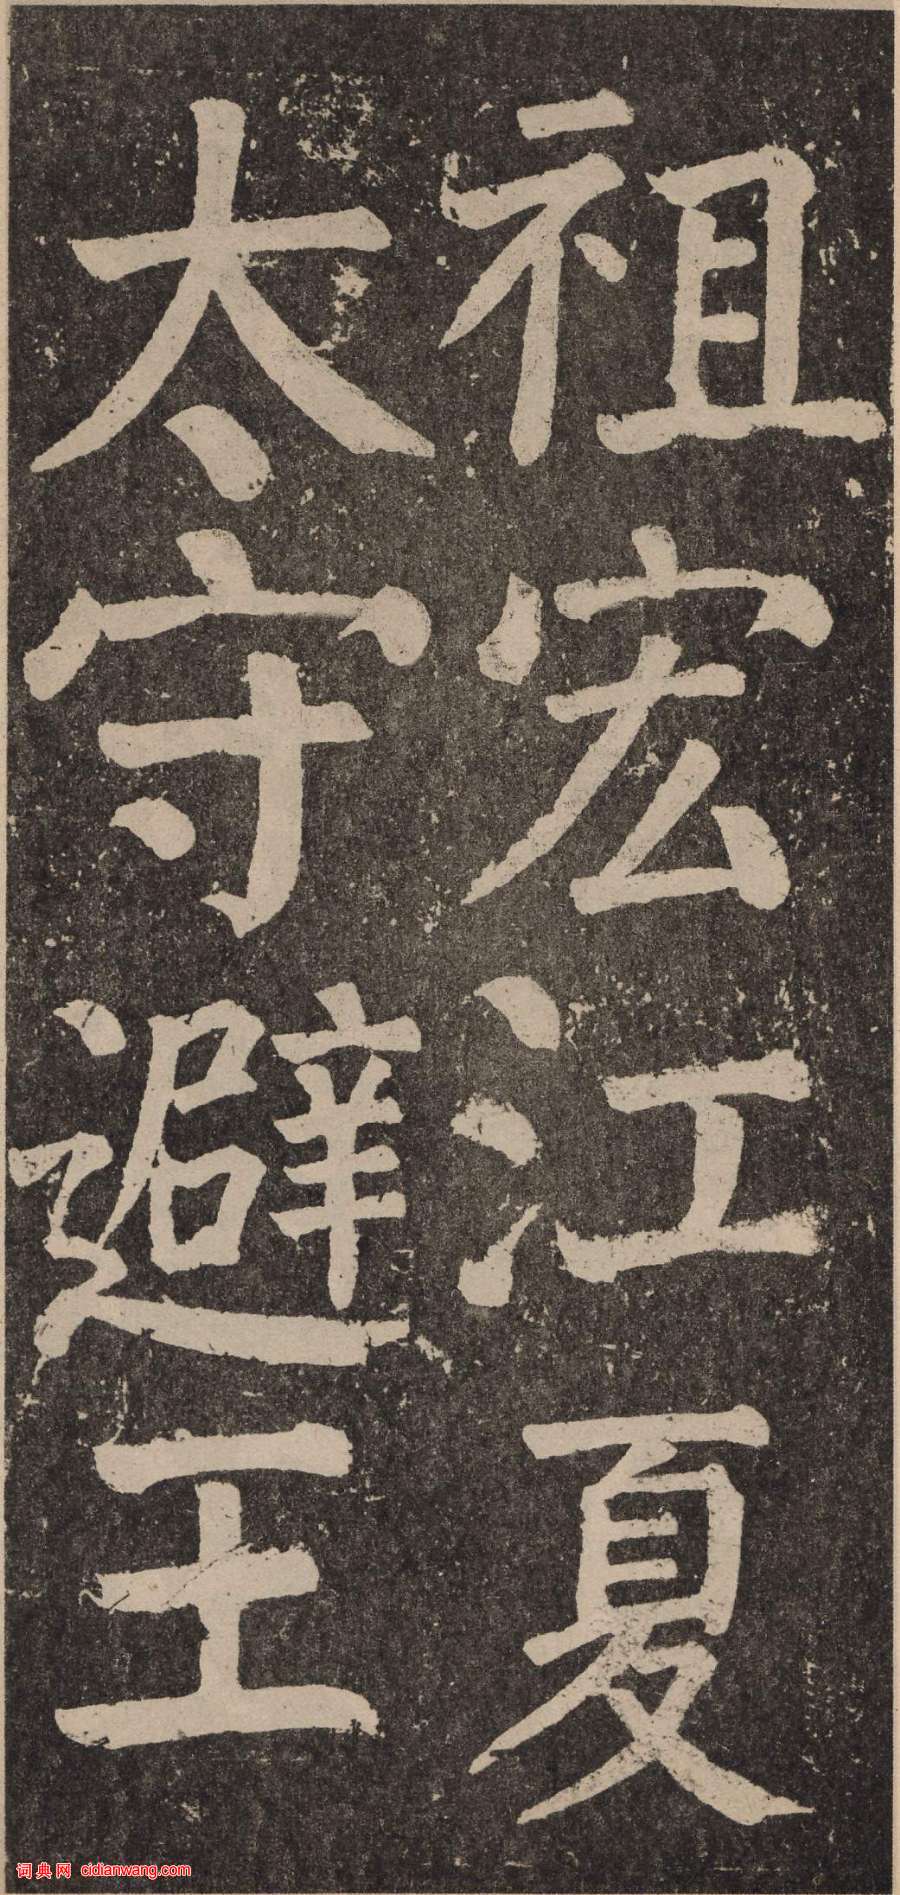 祖宏江夏
太守避王
词典网 cidianwang.com